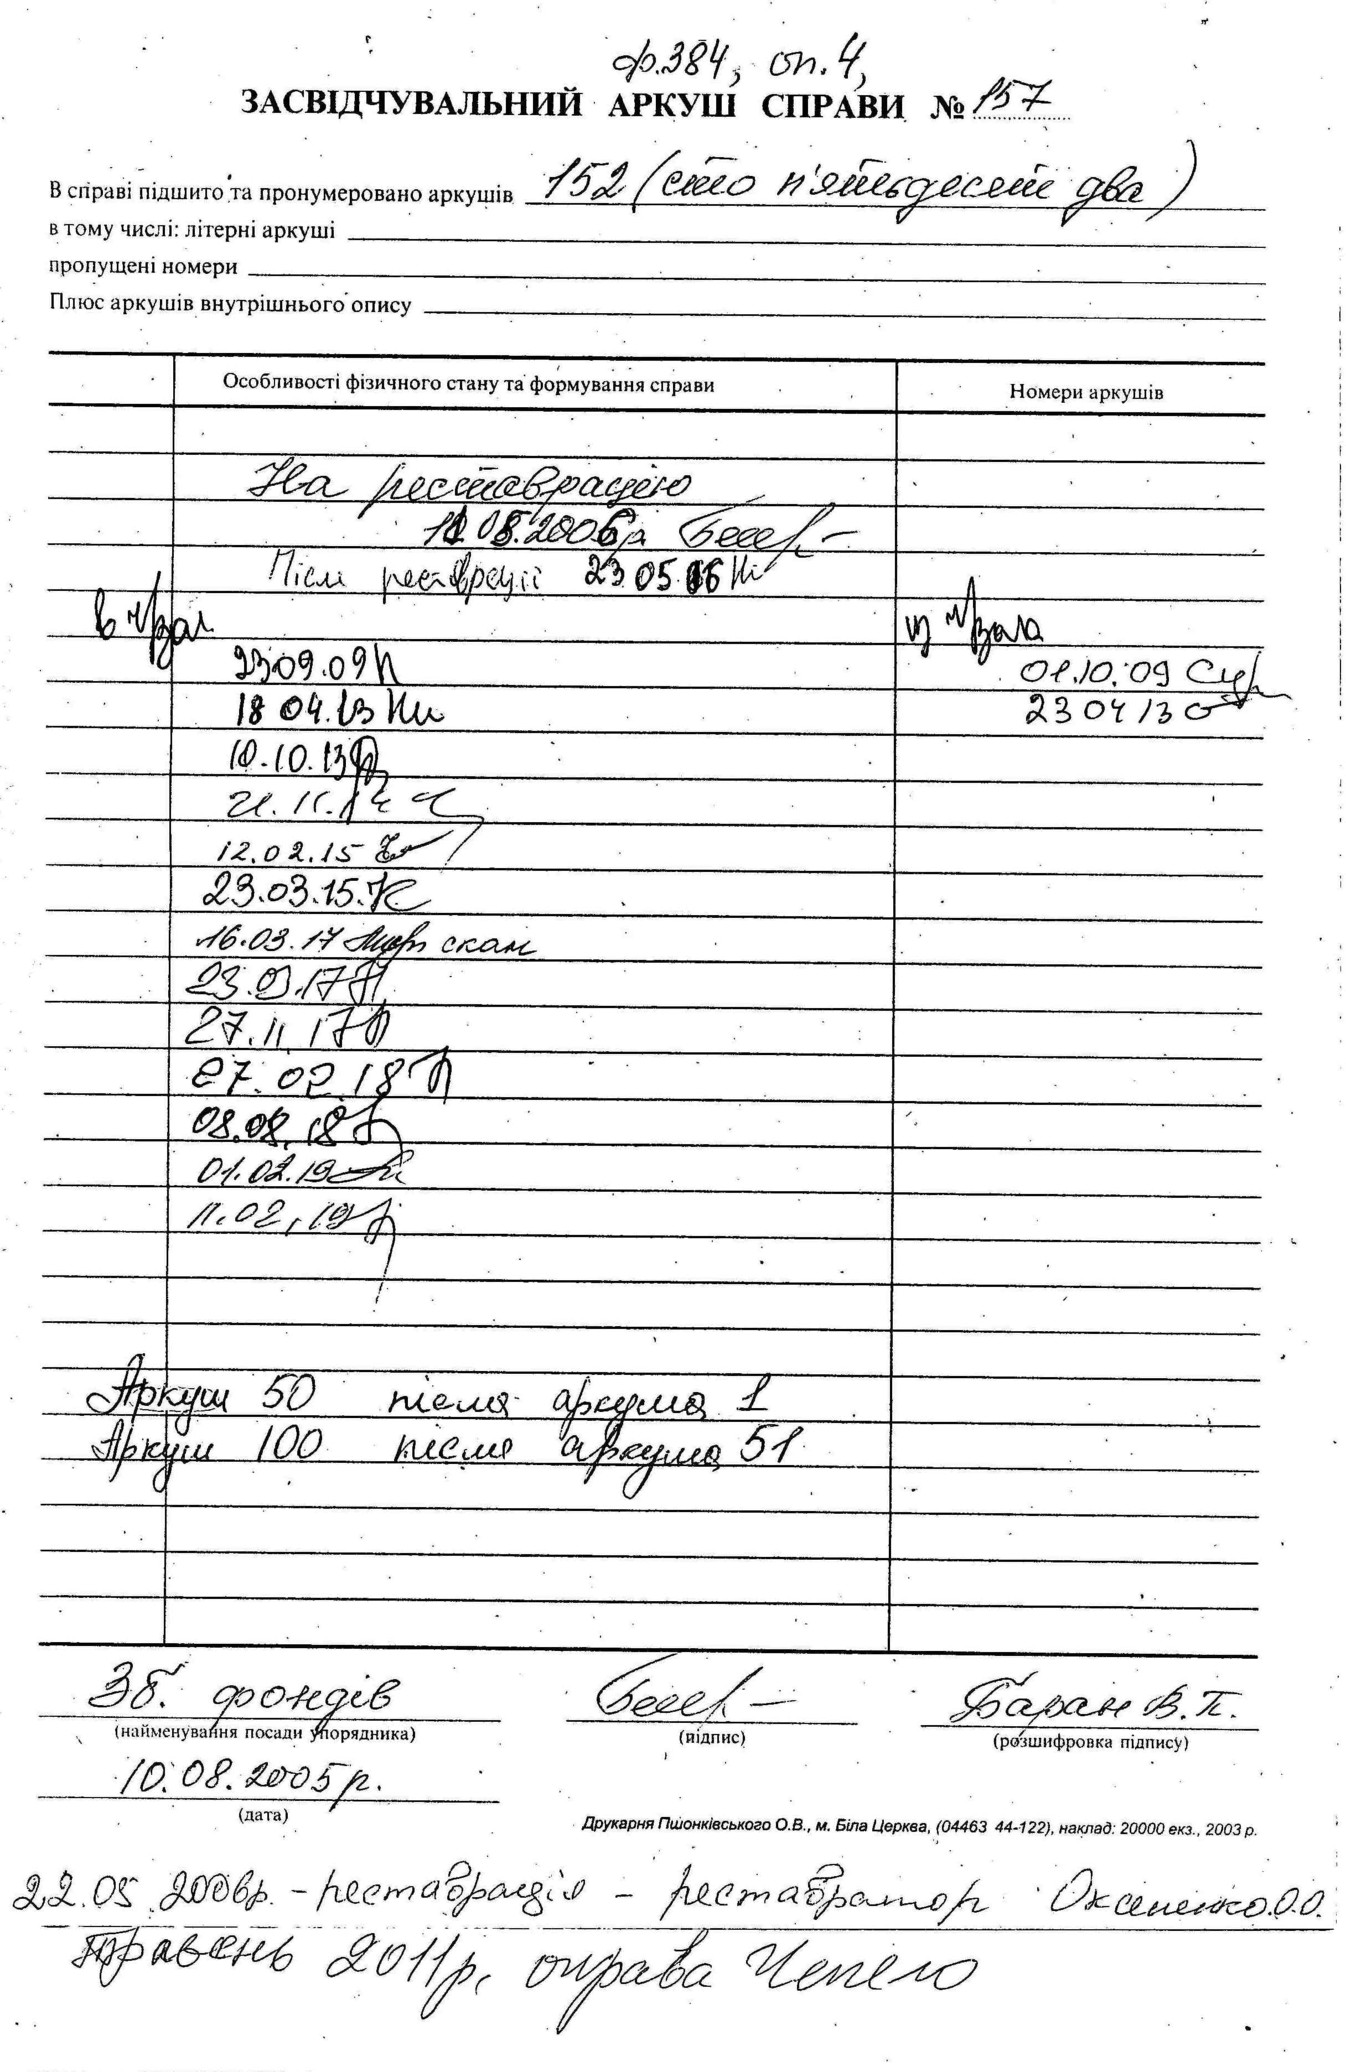 ф.384, оп.4,
ЗАСВІДЧУВАЛЬНИЙ АРКУШ СПРАВИ № 157
В справі підшито та пронумеровано аркушів 152 (сто п'ятьдесят два)
в тому числі: літерні аркуші
пропущені номери
Плюс аркушів внутрішнього опису
Особливості фізичного стану та формування справи Номери аркушів
На реставрацію
08.2006р
Після реставрації 23 05 06
в ч/зал из ч/зала
23.09.09 01.10.09
18 04.13 23 04 13
10.10.13
21.11.14
12.02.15
23.03.15.
16.03.17 скан
23.03.17
27.11.17
27.02.18
08.08.18
01.02.19
11.02.19
Аркуш 50 після аркуша 1
Аркуш 100 після аркуша 51
Зб. фондів Баран В.П.
(найменування посади упорядника) (підпис) (розшифровка підпису)
10.08.2005р.
(дата)
Друкарня Пшонківського О.В., м. Біла Церква, (04463 44-122), наклад: 20000 екз., 2003 р.
22.05.2006р. - реставрація - реставратор О.О.
Травень 2011р. оправа